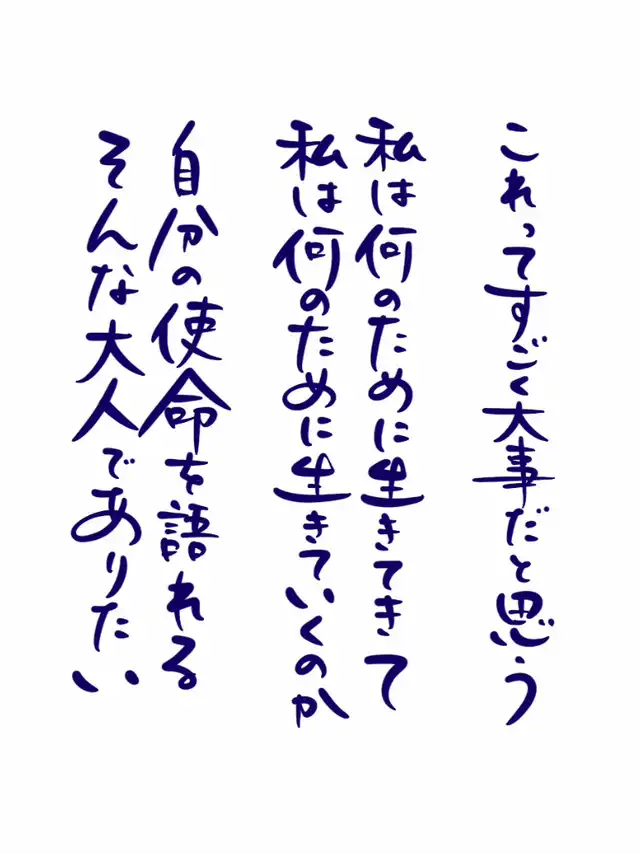 これってすごく大事だと思う
私は何のために生きてきて
私は何のために生きていくのか
自分の使命を語れる
そんな大人でありたい